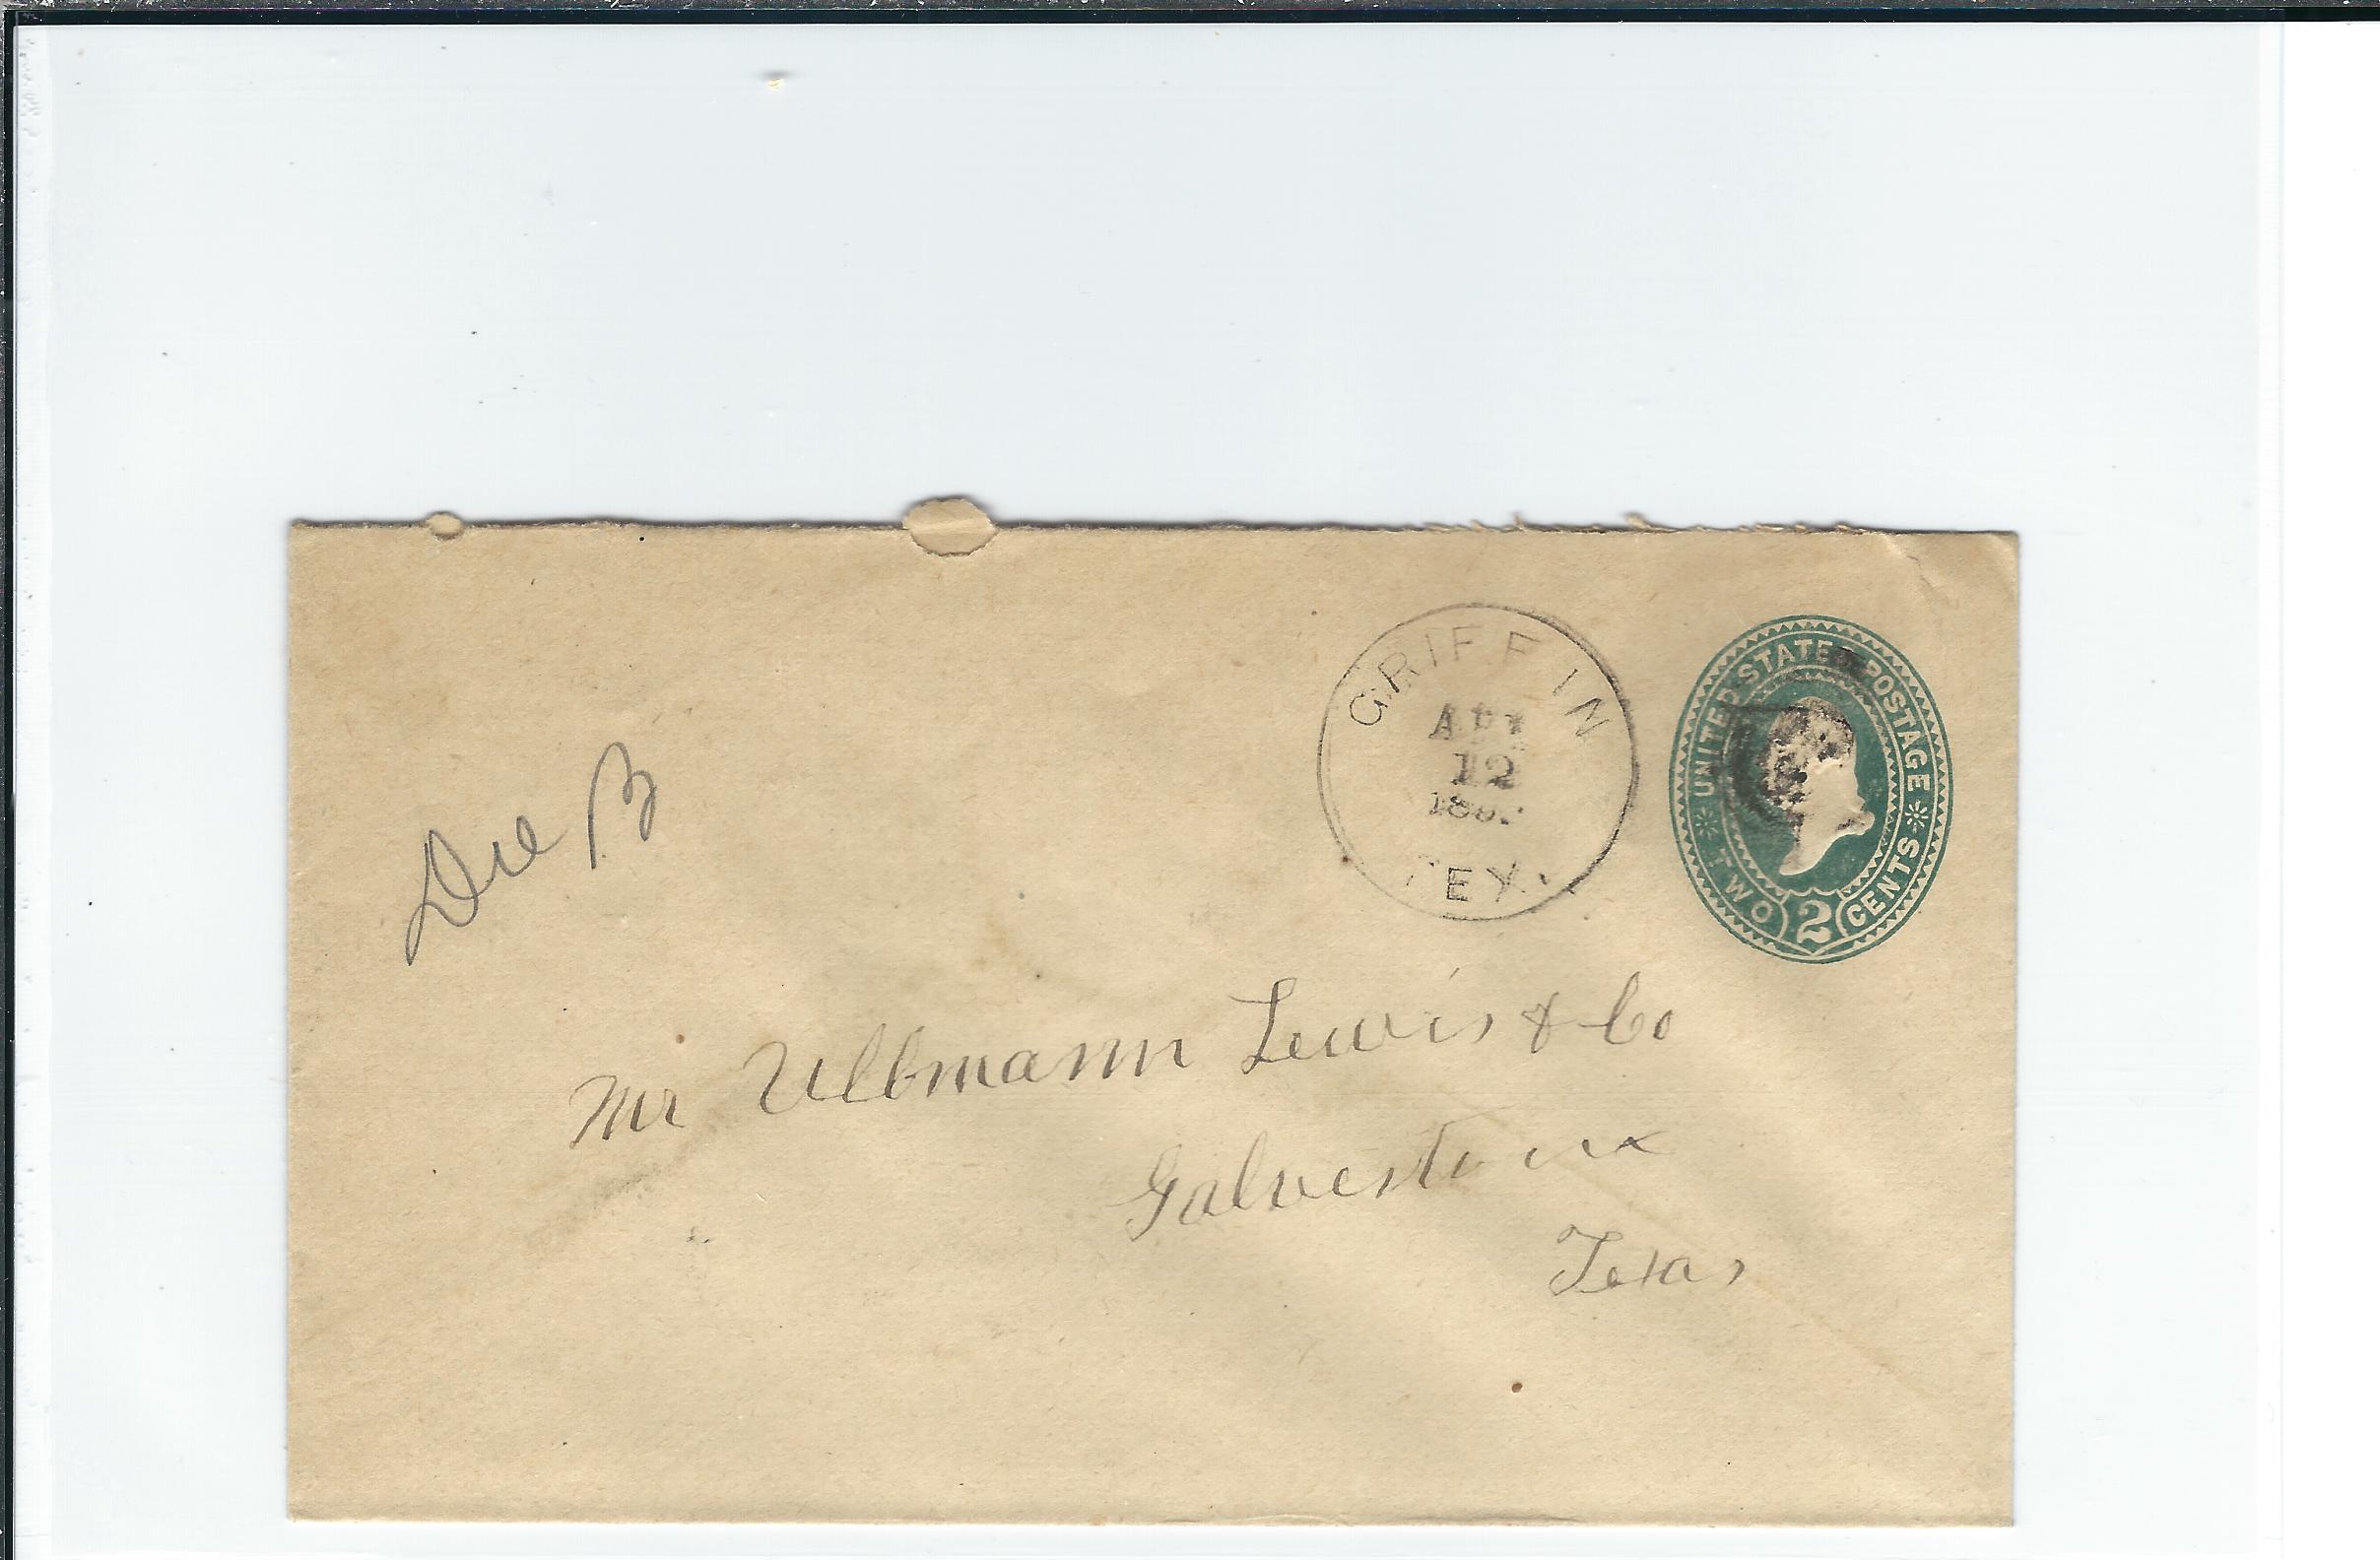 GRIFFIN
APR
12
TEX.
UNITED STATES POSTAGE
TWO 2 CENTS
Mr Ullmann Lewis & Co
Galveston
Texas